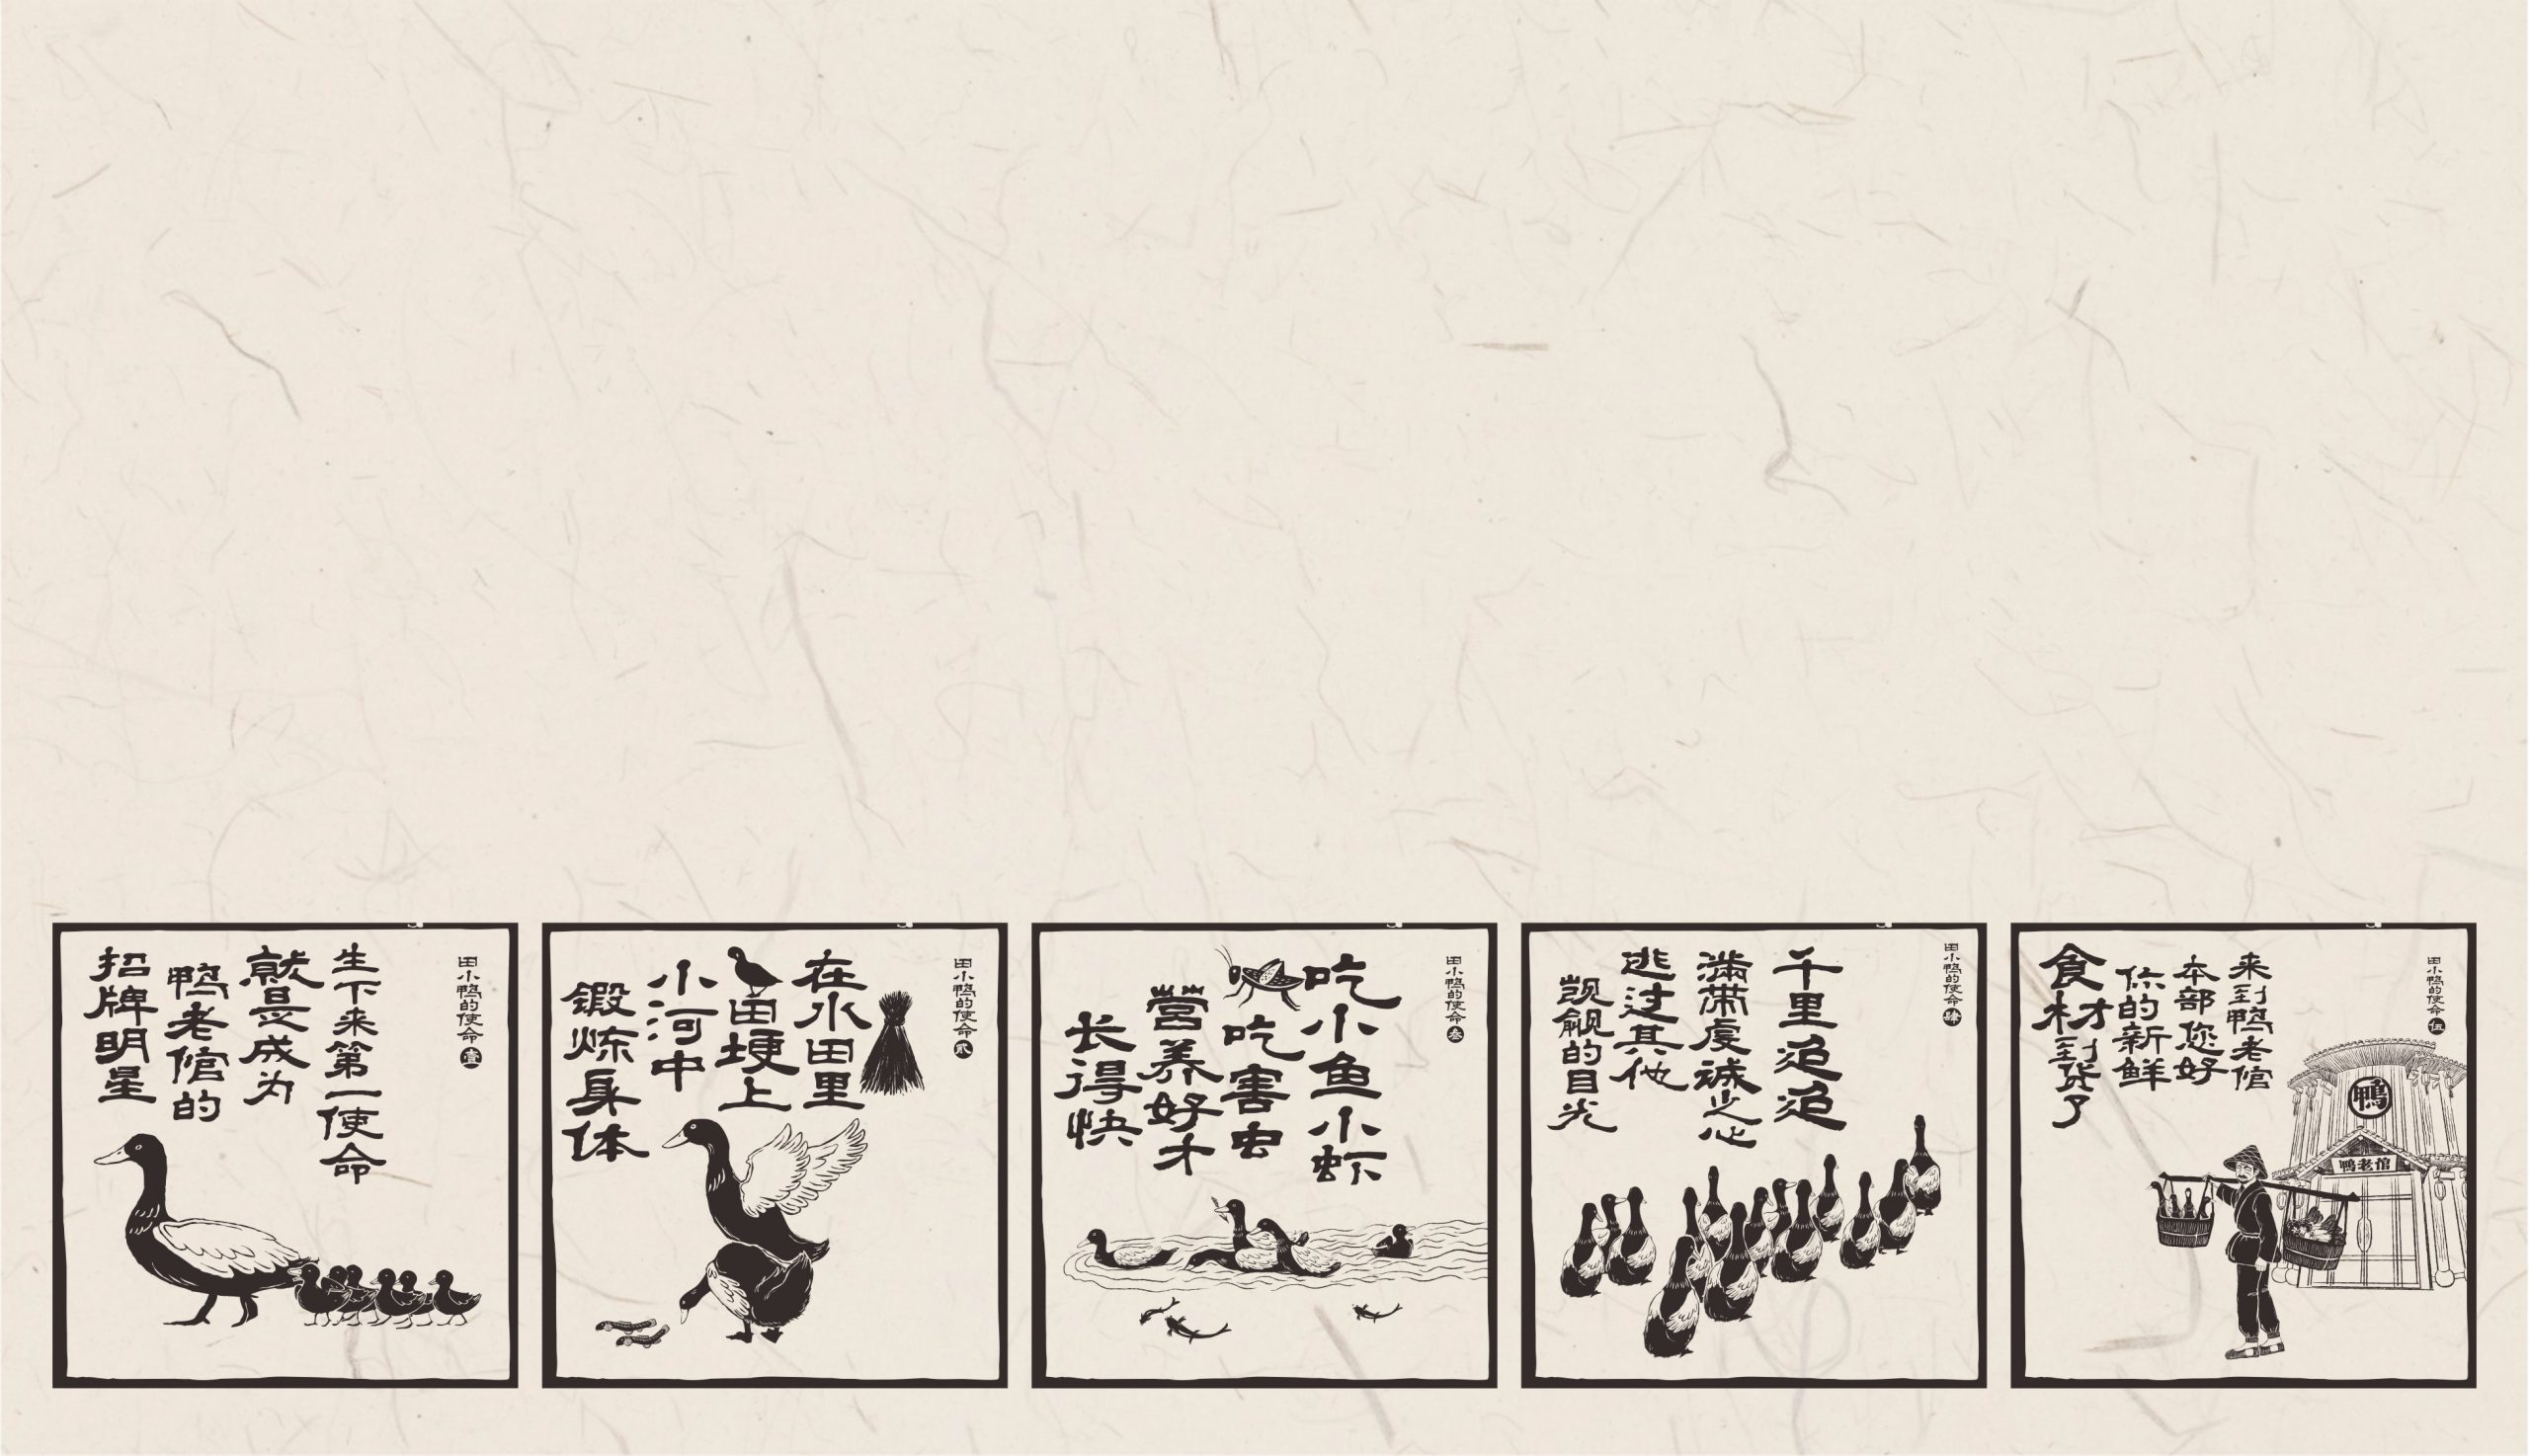 田小鸭的使命 壹
生下来第一使命
就是成为
鸭老倌的
招牌明星
田小鸭的使命 贰
在水田里
田埂上
小河中
锻炼身体
田小鸭的使命 叁
吃小鱼小虾
吃害虫
营养好才
长得快
田小鸭的使命 肆
千里迢迢
满带虔诚之心
逃过其他
觊觎的目光
田小鸭的使命 伍
来到鸭老倌
本部您好
你的新鲜
食材到货了
鴨
鸭老倌